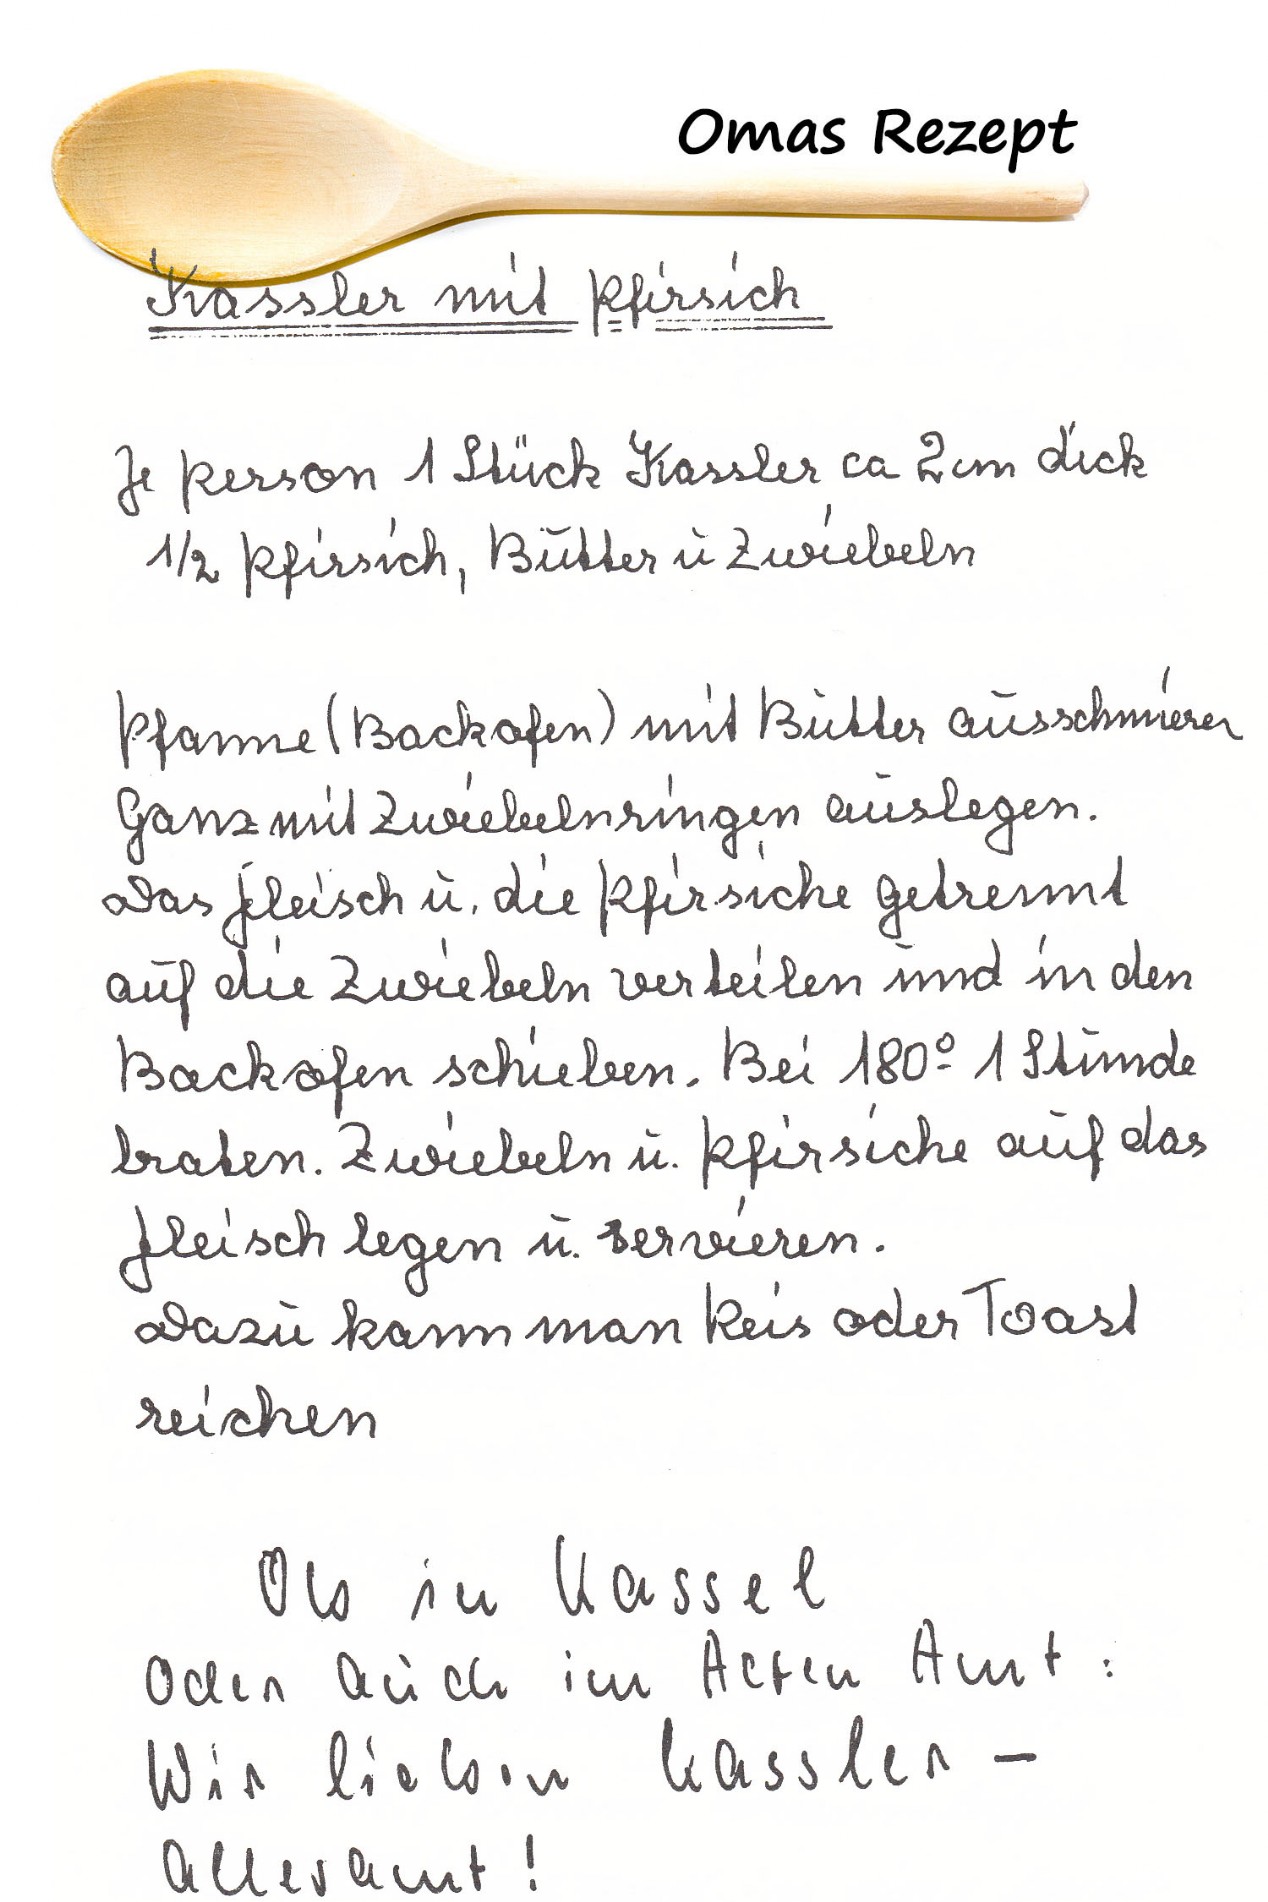 Omas Rezept
Kassler mit Pfirsich
Je Person 1 Stück Kassler ca 2cm dick
1/2 Pfirsich, Butter u Zwiebeln
Pfanne (Backofen) mit Butter ausschmieren
Ganz mit Zwiebelnringen auslegen.
Das Fleisch u. die Pfirsiche getrennt
auf die Zwiebeln verteilen und in den
Backofen schieben. Bei 180° 1 Stunde
braten. Zwiebeln u. Pfirsiche auf das
Fleisch legen u. servieren.
Dazu kann man Reis oder Toast
reichen
Ob in Kassel
Oder auch im Acten Amt:
Wir lieben Kassler –
Allesamt!